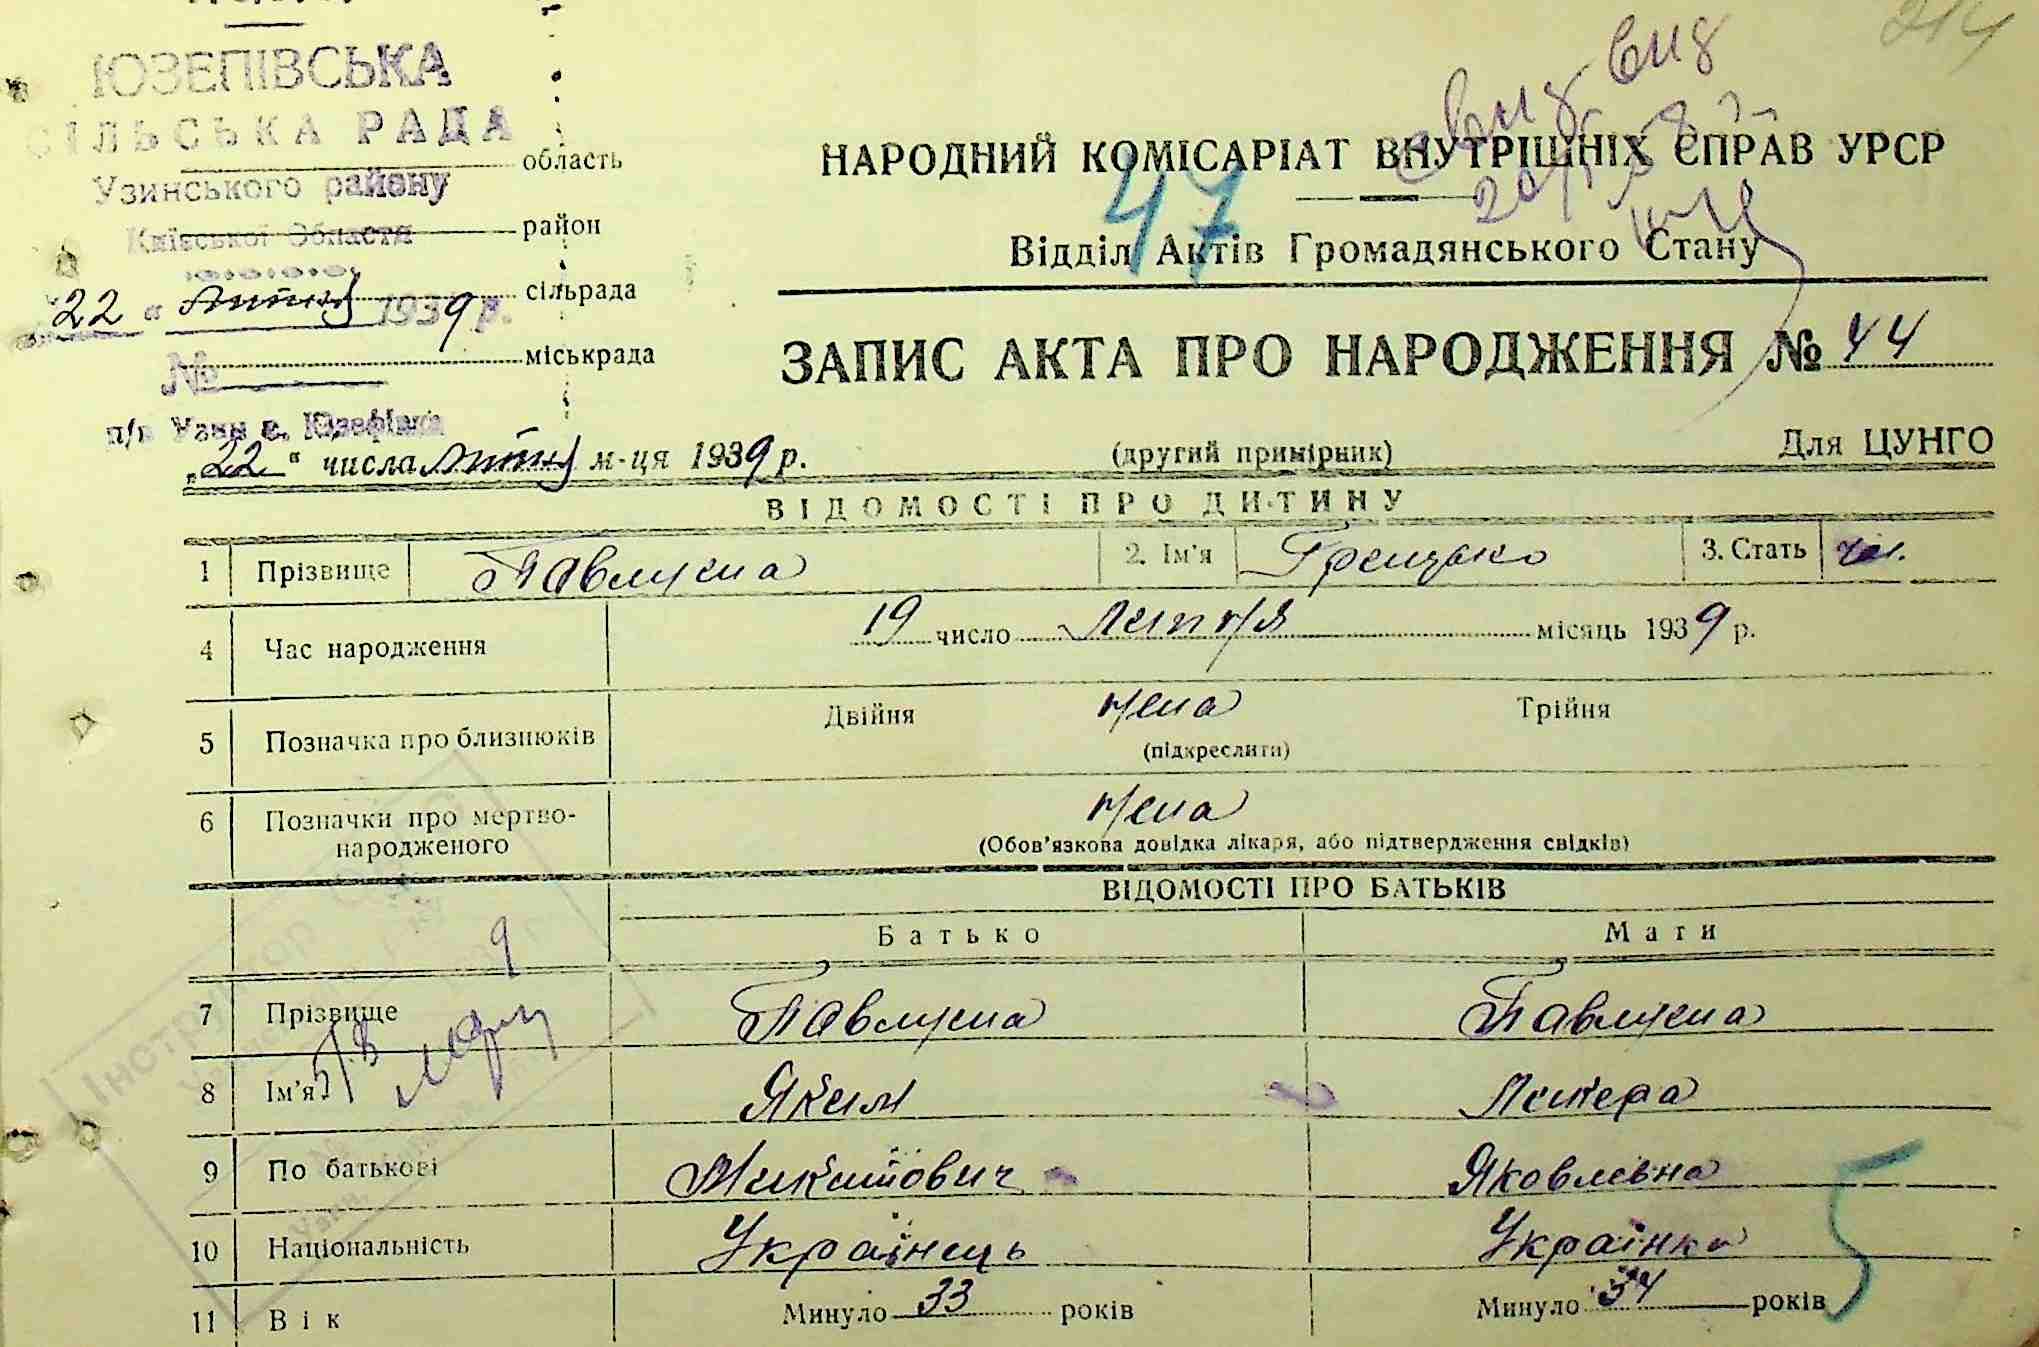 ЮЗЕПІВСЬКА
СІЛЬСЬКА РАДА
область
Узинського району
Київської Области
район
"22" липня 1939 р.
сільрада
№
міськрада
п/в Узин с. Юзефівка
214
НАРОДНИЙ КОМІСАРІАТ ВНУТРІШНІХ СПРАВ УРСР
47
Відділ Актів Громадянського Стану
ЗАПИС АКТА ПРО НАРОДЖЕННЯ № 44
"22" числа липня м-ця 1939 р.
(другий примірник)
Для ЦУНГО
ВІДОМОСТІ ПРО ДИТИНУ
1 Прізвище Павлуша 2. Ім'я Грицько 3. Стать чол.
4 Час народження 19 число Липня місяць 1939 р.
5 Позначка про близнюків Двійня нема Трійня
(підкреслити)
6 Позначки про мертво-
народженого нема
(Обов'язкова довідка лікаря, або підтвердження свідків)
ВІДОМОСТІ ПРО БАТЬКІВ
Батько Мати
7 Прізвище Павлуша Павлуша
8 Ім'я Яким Ликера
9 По батькові Микитович Яковлевна
10 Національність Українець Українка
11 Вік Минуло 33 років Минуло 34 років
5
Інструктор